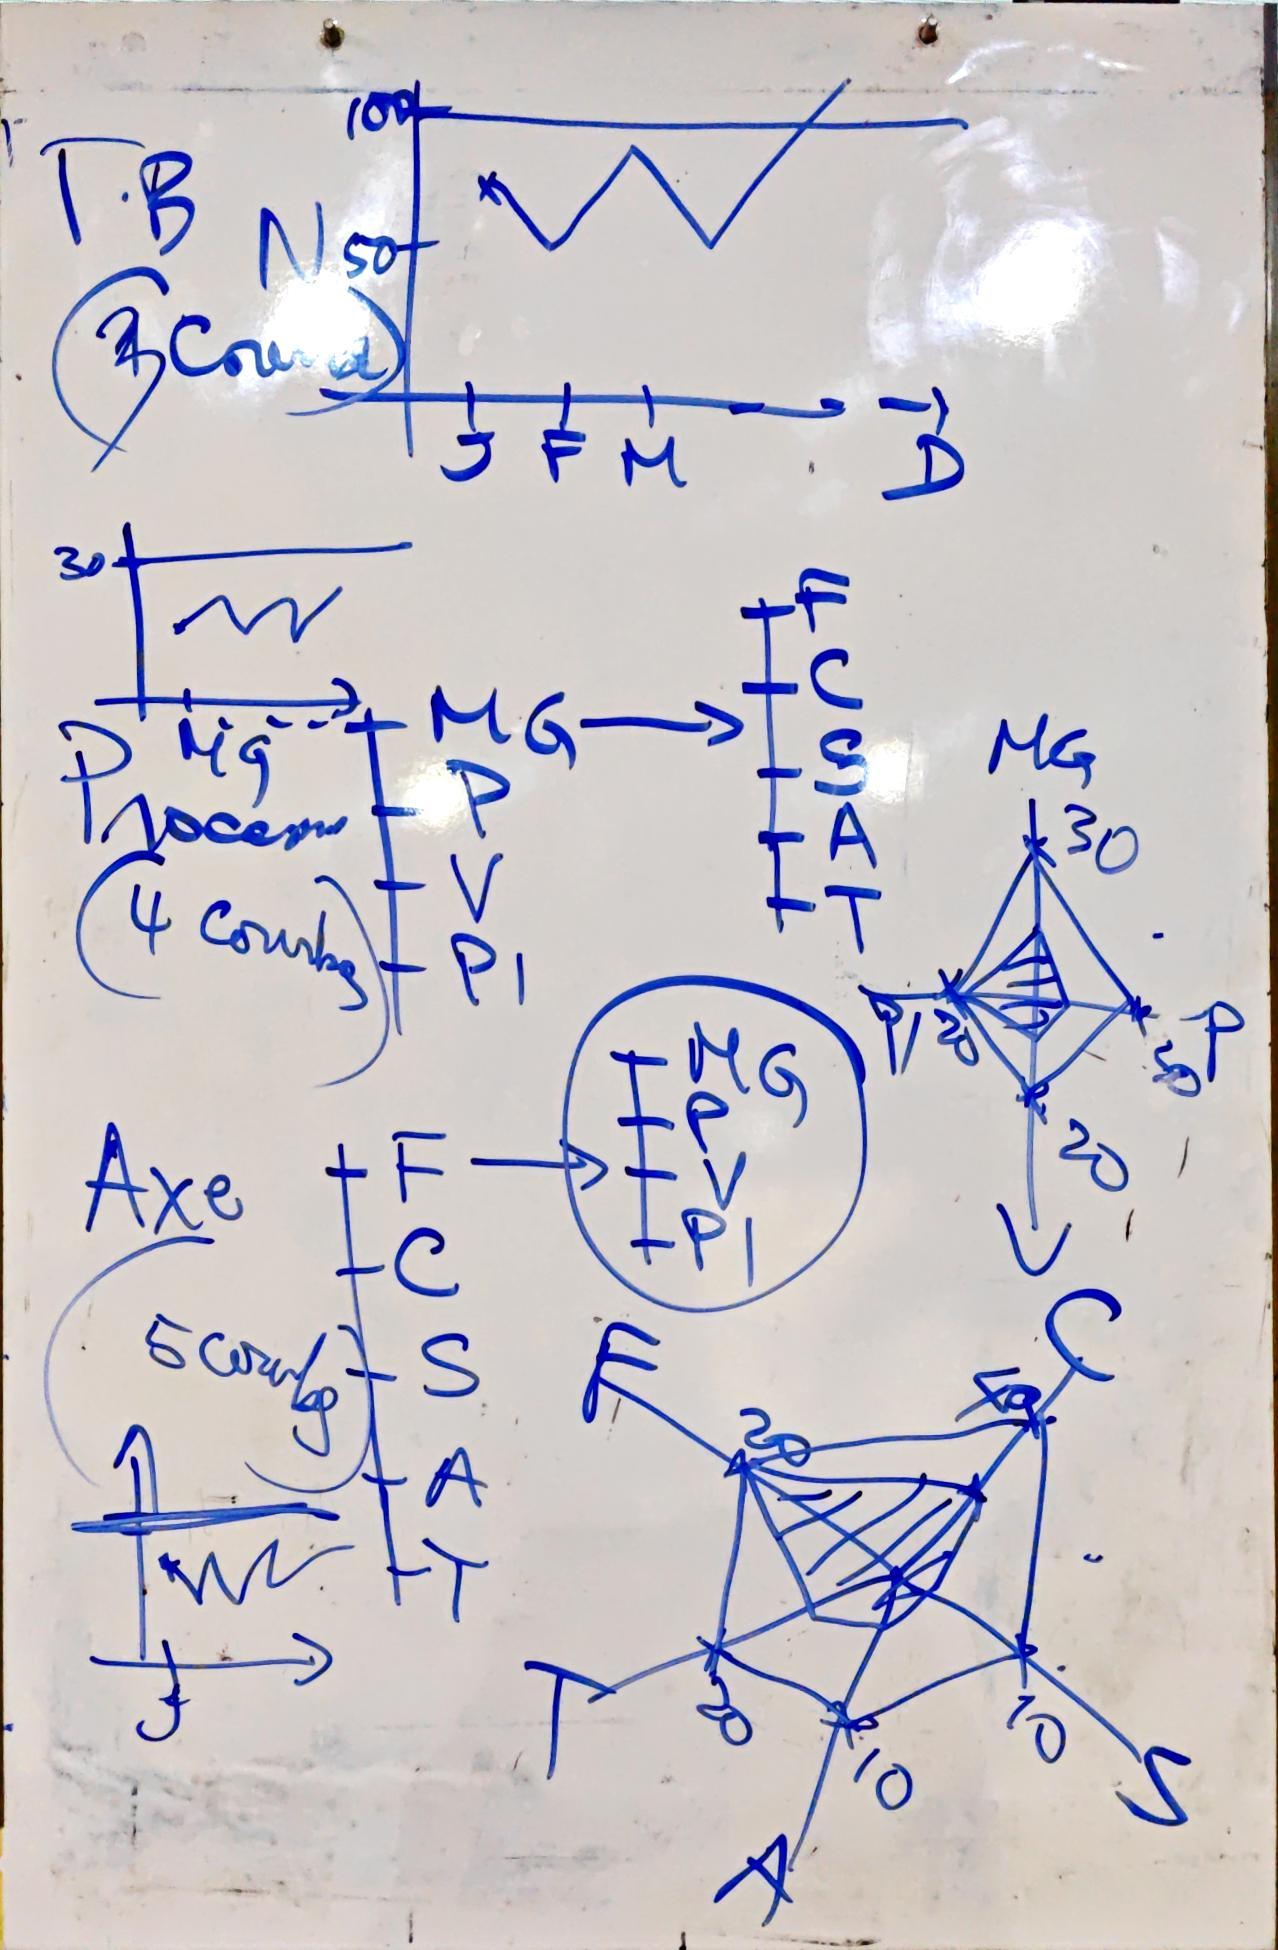 100
T.B
N 50
J F M D
30
MG
Process
(4 Courbes)
MG
P
V
P1
F
C
S
A
T
MG
30
P1 20
P
30
20
V
Axe
(5 Courbes)
F
C
S
A
T
MG
P
V
P1
J
F
C
20
T
20
10
10
S
A